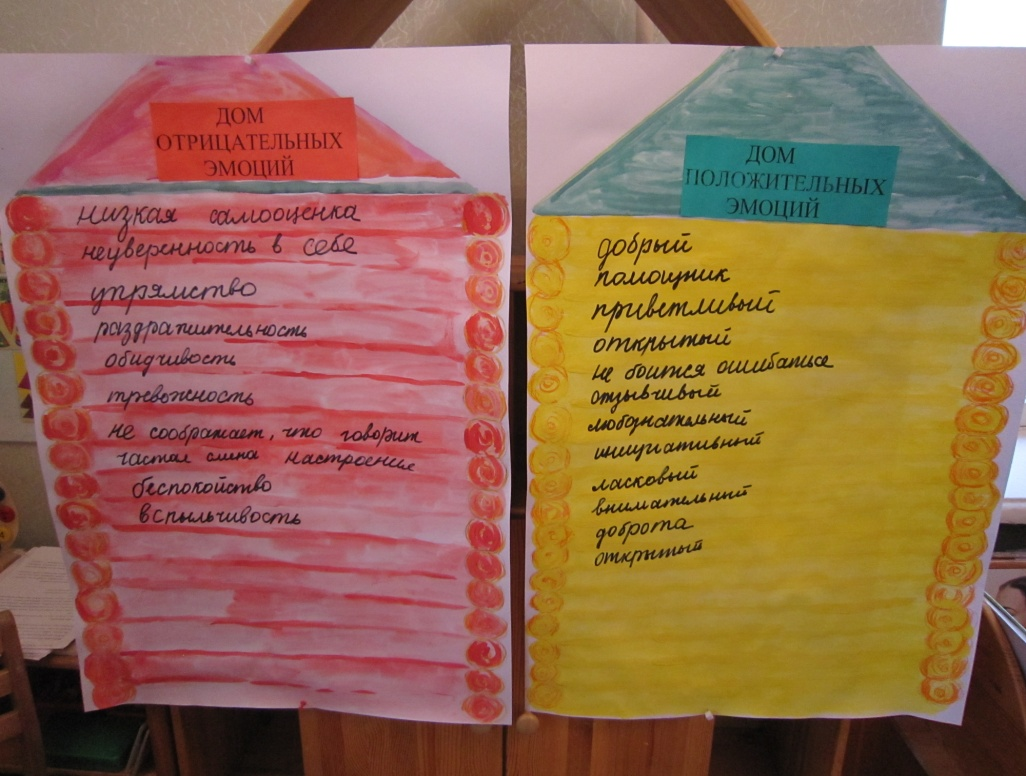 ДОМ
ОТРИЦАТЕЛЬНЫХ
ЭМОЦИЙ
низкая самооценка
неуверенность в себе
упрямство
раздражительность
обидчивость
тревожность
не соображает, что говорит
частая смена настроения
беспокойство
вспыльчивость
ДОМ
ПОЛОЖИТЕЛЬНЫХ
ЭМОЦИЙ
добрый
помощник
приветливый
открытый
не боится ошибаться
отзывчивый
любознательный
ласковый
внимательный
доброта
открытый